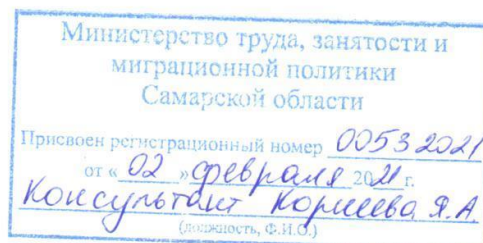 Министерство труда, занятости и
миграционной политики
Самарской области
Присвоен регистрационный номер 00532021
от « 02 » февраля 2021 г.
Консультант Корнеева Я.А
(должность, Ф.И.О.)